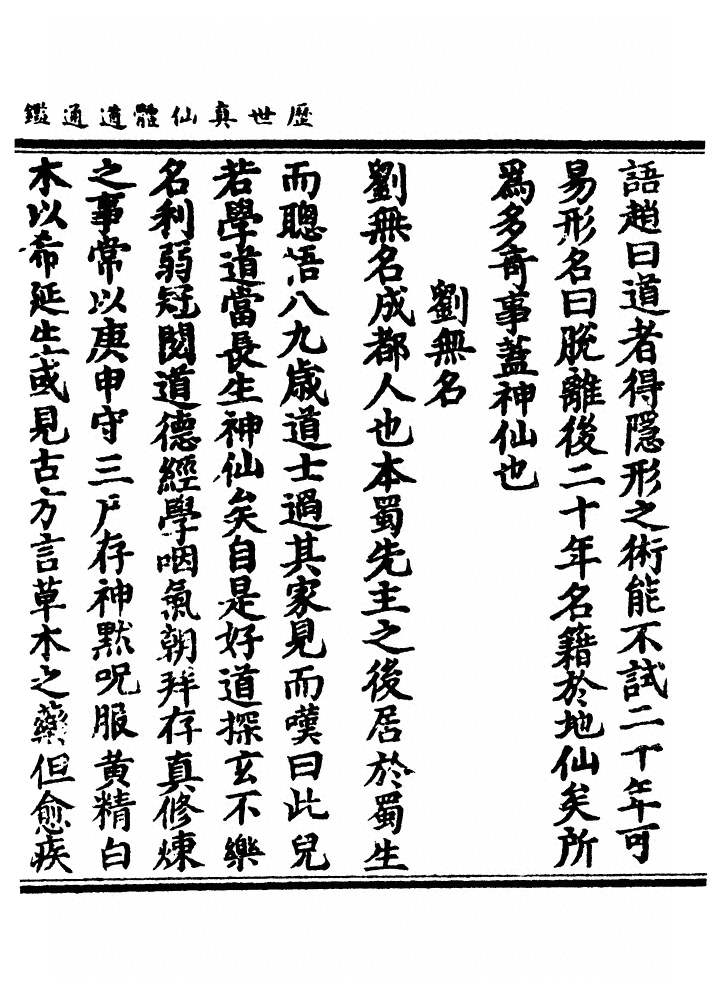 歷世真仙體道通鑑
語趙曰道者得隱形之術能不試二十年可
易形名曰脫離後二十年名籍於地仙矣所
爲多奇事蓋神仙也
劉無名
劉無名成都人也本蜀先主之後居於蜀生
而聰悟八九歲道士過其家見而嘆曰此兒
若學道當長生神仙矣自是好道探玄不樂
名利弱冠閱道德經學咽氣朝拜存真修煉
之事常以庚申守三尸存神默呪服黄精白
木以希延生或見古方言草木之藥但愈疾